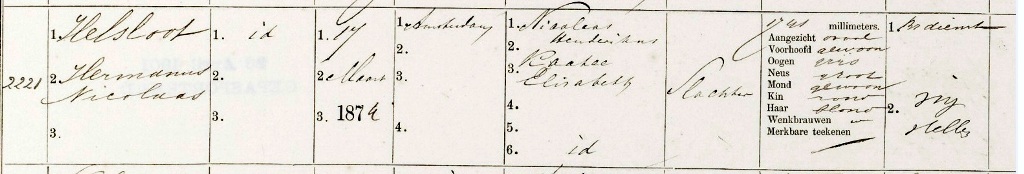 2221
1. Helsloot
2. Hermanus
Nicolaas
3.
1. id
2.
3.
1. 17
2. Maart
3. 1874
1. Amsterdam
2.
3.
4.
1. Nicolaas
Hendrikus
2.
3. Kaatee
Elisabeth
4.
5.
6. id
Slachter
millimeters.
Aangezicht ovaal
Voorhoofd gewoon
Oogen grijs
Neus groot
Mond gewoon
Kin rond
Haar blond
Wenkbrauwen
Merkbare teekenen
1.
2.